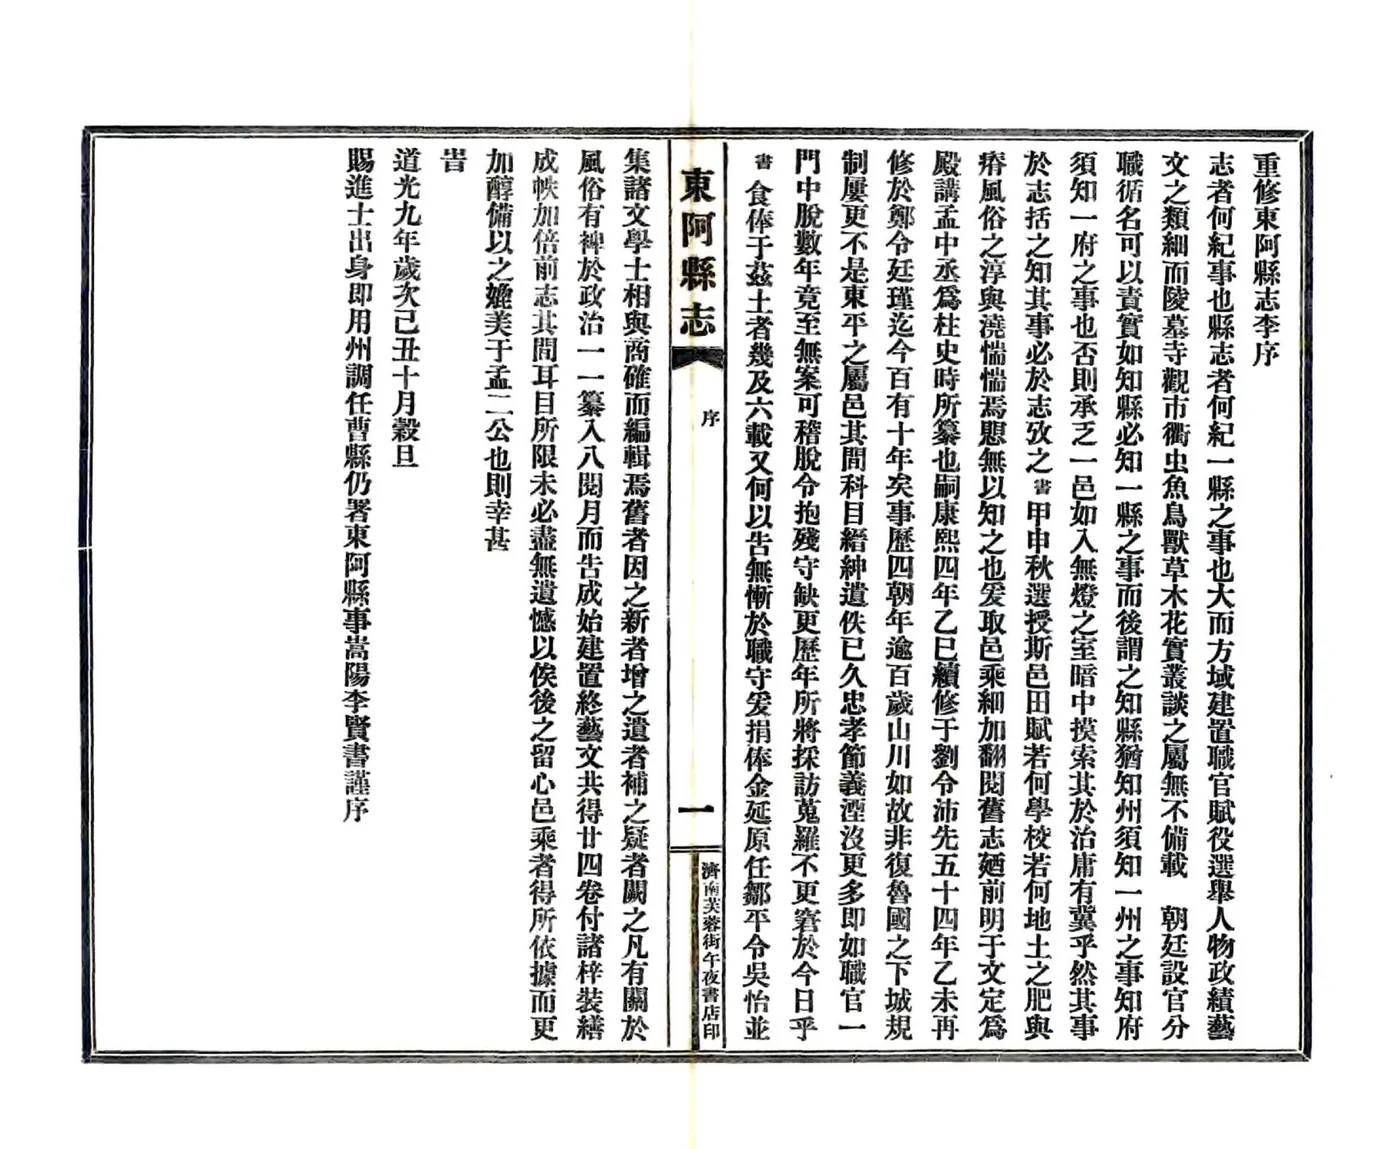 重修東阿縣志李序
志者何紀事也縣志者何紀一縣之事也大而方域建置職官賦役選舉人物政績藝
文之類細而陵墓寺觀市衢虫魚鳥獸草木花實叢談之屬無不備載　朝廷設官分
職循名可以責實如知縣必知一縣之事而後謂之知縣猶知州須知一州之事知府
須知一府之事也否則承乏一邑如入無燈之室暗中摸索其於治庸有冀乎然其事
於志括之知其事必於志攷之書甲申秋選授斯邑田賦若何學校若何地土之肥與
瘠風俗之淳與澆惴惴焉懇無以知之也爰取邑乘細加翻閱舊志廼前明于文定爲
殿講孟中丞爲柱史時所纂也嗣康熙四年乙巳續修于劉令沛先五十四年乙未再
修於鄭令廷瑾迄今百有十年矣事歷四朝年逾百歲山川如故非復魯國之下城規
制屢更不是東平之屬邑其間科目縉紳遺佚已久忠孝節義湮沒更多即如職官一
門中脫數年竟至無案可稽脫令抱殘守缺更歷年所將採訪蒐羅不更窘於今日乎
書食俸于茲土者幾及六載又何以告無慚於職守爰捐俸金延原任鄒平令吳怡並
東阿縣志
序
一
濟南芙蓉街午夜書店印
集諸文學士相與商確而編輯焉舊者因之新者增之遺者補之疑者闕之凡有關於
風俗有裨於政治一一纂入八閱月而告成始建置終藝文共得廿四卷付諸梓裝繕
成帙加倍前志其間耳目所限未必盡無遺憾以俟後之留心邑乘者得所依據而更
加醇備以之媲美于孟二公也則幸甚
旹
道光九年歲次己丑十月穀旦
賜進士出身即用州調任曹縣仍署東阿縣事嵩陽李賢書謹序